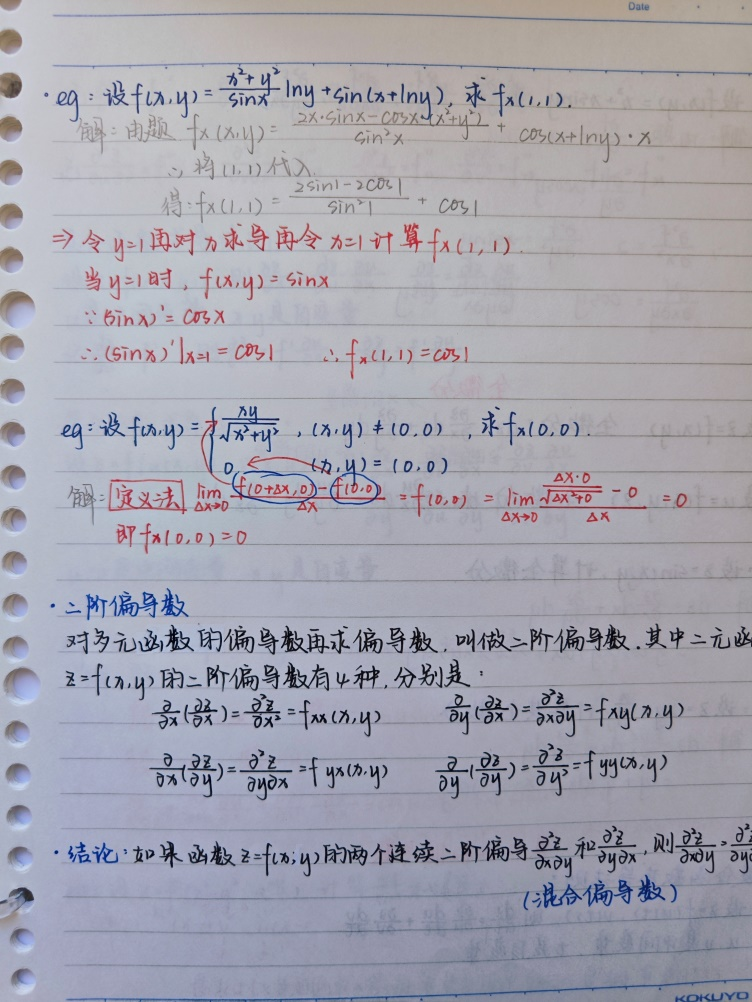 Date
·eg:设f(x,y)=\frac{x²+y²}{sinx}lny+sin(x+lny),求fx(1,1).
解:由题 fx(x,y)=\frac{2x·sinx-cosx·(x²+y²)}{sin²x}+cos(x+lny)·x
∴将(1,1)代入
得:fx(1,1)=\frac{2sin1-2cos1}{sin²1}+cos1
⇒令y=1再对x求导再令x=1计算fx(1,1).
当y=1时,f(x,y)=sinx
∵(sinx)'=cosx
∴(sinx)'|x=1=cos1 ∴fx(1,1)=cos1
eg:设f(x,y)={\frac{xy}{\sqrt{x²+y²}},(x,y)≠(0,0),求fx(0,0).
0,(x,y)=(0,0)
解:定义法 \lim_{Δx→0}\frac{f(0+Δx,0)-f(0,0)}{Δx}=f(0,0)=\lim_{Δx→0}\frac{\frac{Δx·0}{\sqrt{Δx²+0}}-0}{Δx}=0
即fx(0,0)=0
·二阶偏导数
对多元函数的偏导数再求偏导数,叫做二阶偏导数.其中二元函
z=f(x,y)的二阶偏导数有4种,分别是:
\frac{∂}{∂x}(\frac{∂z}{∂x})=\frac{∂²z}{∂x²}=fxx(x,y) \frac{∂}{∂y}(\frac{∂z}{∂x})=\frac{∂²z}{∂x∂y}=fxy(x,y)
\frac{∂}{∂x}(\frac{∂z}{∂y})=\frac{∂²z}{∂y∂x}=fyx(x,y) \frac{∂}{∂y}(\frac{∂z}{∂y})=\frac{∂²z}{∂y²}=fyy(x,y)
·结论:如果函数z=f(x,y)的两个连续二阶偏导\frac{∂²z}{∂x∂y}和\frac{∂²z}{∂y∂x},则\frac{∂²z}{∂x∂y}=\frac{∂²z}{∂y∂
(混合偏导数)
KOKUYO